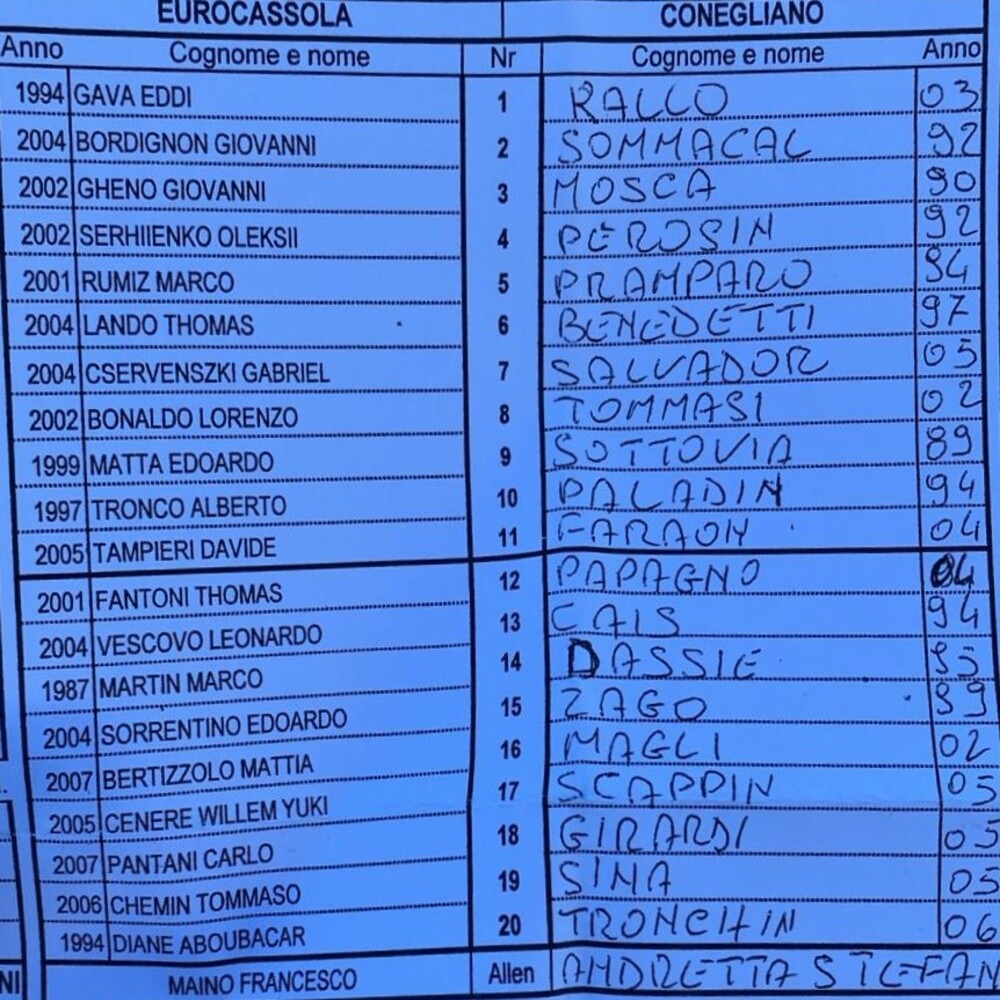 EUROCASSOLA CONEGLIANO
Anno Cognome e nome Nr Cognome e nome Anno
1994 GAVA EDDI 1 RALLO 03
2004 BORDIGNON GIOVANNI 2 SOMMACAL 92
2002 GHENO GIOVANNI 3 MOSCA 90
2002 SERHIIENKO OLEKSII 4 PEROSIN 92
2001 RUMIZ MARCO 5 PRAMPARO 94
2004 LANDO THOMAS 6 BENEDETTI 97
2004 CSERVENSZKI GABRIEL 7 SALVADOR 05
2002 BONALDO LORENZO 8 TOMMASI 02
1999 MATTA EDOARDO 9 SOTTOVIA 89
1997 TRONCO ALBERTO 10 PALADIN 94
2005 TAMPIERI DAVIDE 11 FARAON 04
2001 FANTONI THOMAS 12 PAPAGNO 04
2004 VESCOVO LEONARDO 13 CAIS 94
1987 MARTIN MARCO 14 DASSIE 95
2004 SORRENTINO EDOARDO 15 ZAGO
2007 BERTIZZOLO MATTIA 16 MAGLI 02
2005 CENERE WILLEM YUKI 17 SCAPPIN 05
2007 PANTANI CARLO 18 GIRARDI 05
2006 CHEMIN TOMMASO 19 SINA 05
1994 DIANE ABOUBACAR 20 TRONCHIN 06
NI MAINO FRANCESCO Allen ANDRETTA STEFAN